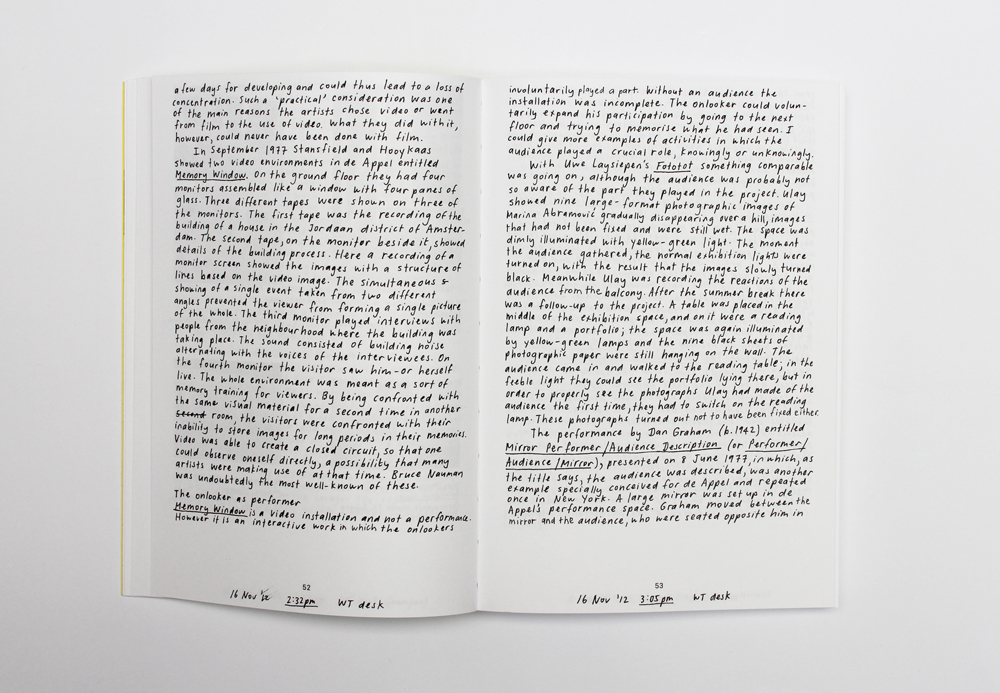 a few days for developing and could thus lead to a loss of
concentration. Such a 'practical' consideration was one
of the main reasons the artists chose video or went
from film to the use of video. What they did with it,
however, could never have been done with film.
In September 1977 Stansfield and Hooykaas
showed two video environments in de Appel entitled
Memory Window. On the ground floor they had four
monitors assembled like a window with four panes of
glass. Three different tapes were shown on three of
the monitors. The first tape was the recording of the
building of a house in the Jordaan district of Amster-
dam. The second tape, on the monitor beside it, showed
details of the building process. Here a recording of a
monitor screen showed the images with a structure of
lines based on the video image. The simultaneous &
showing of a single event taken from two different
angles prevented the viewer from forming a single picture
of the whole. The third monitor played interviews with
people from the neighbourhood where the building was
taking place. The sound consisted of building noise
alternating with the voices of the interviewees. On
the fourth monitor the visitor saw him-or herself
live. The whole environment was meant as a sort of
memory training for viewers. By being confronted with
the same visual material for a second time in another
second room, the visitors were confronted with their
inability to store images for long periods in their memories.
Video was able to create a closed circuit, so that one
could observe oneself directly, a possibility that many
artists were making use of at that time. Bruce Nauman
was undoubtedly the most well-known of these.
The onlooker as performer
Memory Window is a video installation and not a performance.
However it is an interactive work in which the onlookers
52
16 Nov '12 2:32pm WT desk
involuntarily played a part. Without an audience the
installation was incomplete. The onlooker could volun-
tarily expand his participation by going to the next
floor and trying to memorise what he had seen. I
could give more examples of activities in which the
audience played a crucial role, knowingly or unknowingly.
With Uwe Laysiepen's Fototot something comparable
was going on, although the audience was probably not
so aware of the part they played in the project. Ulay
showed nine large-format photographic images of
Marina Abramović gradually disappearing over a hill, images
that had not been fixed and were still wet. The space was
dimly illuminated with yellow-green light. The moment
the audience gathered, the normal exhibition lights were
turned on, with the result that the images slowly turned
black. Meanwhile Ulay was recording the reactions of the
audience from the balcony. After the summer break there
was a follow-up to the project. A table was placed in the
middle of the exhibition space, and on it were a reading
lamp and a portfolio; the space was again illuminated
by yellow-green lamps and the nine black sheets of
photographic paper were still hanging on the wall. The
audience came in and walked to the reading table; in the
feeble light they could see the portfolio lying there, but in
order to properly see the photographs Ulay had made of the
audience the first time, they had to switch on the reading
lamp. These photographs turned out not to have been fixed either.
The performance by Dan Graham (b.1942) entitled
Mirror Performer/Audience Description (or Performer/
Audience/Mirror), presented on 8 June 1977, in which, as
the title says, the audience was described, was another
example specially conceived for de Appel and repeated
once in New York. A large mirror was set up in de
Appel's performance space. Graham moved between the
mirror and the audience, who were seated opposite him in
53
16 Nov '12 3:05pm WT desk